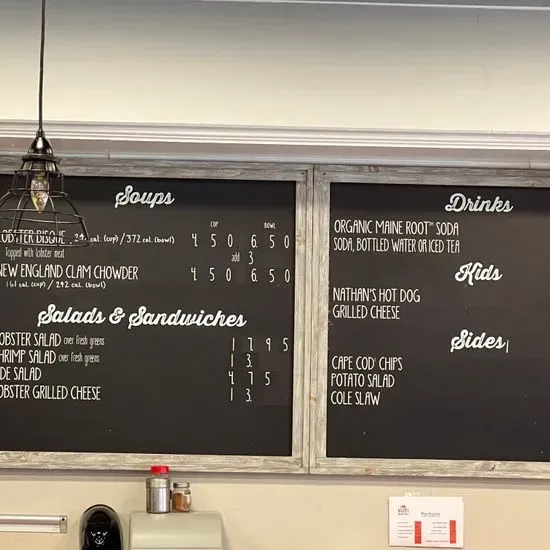 Soups
CUP BOWL
LOBSTER BISQUE, 241 cal. (cup) / 372 cal. (bowl) 4 5 0 6. 5 0
topped with lobster meat add 3
NEW ENGLAND CLAM CHOWDER 4 5 0 6. 5 0
161 cal. (cup) / 242 cal. (bowl)
Salads & Sandwiches
OBSTER SALAD over fresh greens 1 7. 9 5
HRIMP SALAD over fresh greens 1 3.
DE SALAD 4 7 5
OBSTER GRILLED CHEESE 1 3.
Drinks
ORGANIC MAINE ROOT™ SODA
SODA, BOTTLED WATER OR ICED TEA
Kids
NATHAN'S HOT DOG
GRILLED CHEESE
Sides
CAPE COD® CHIPS
POTATO SALAD
COLE SLAW